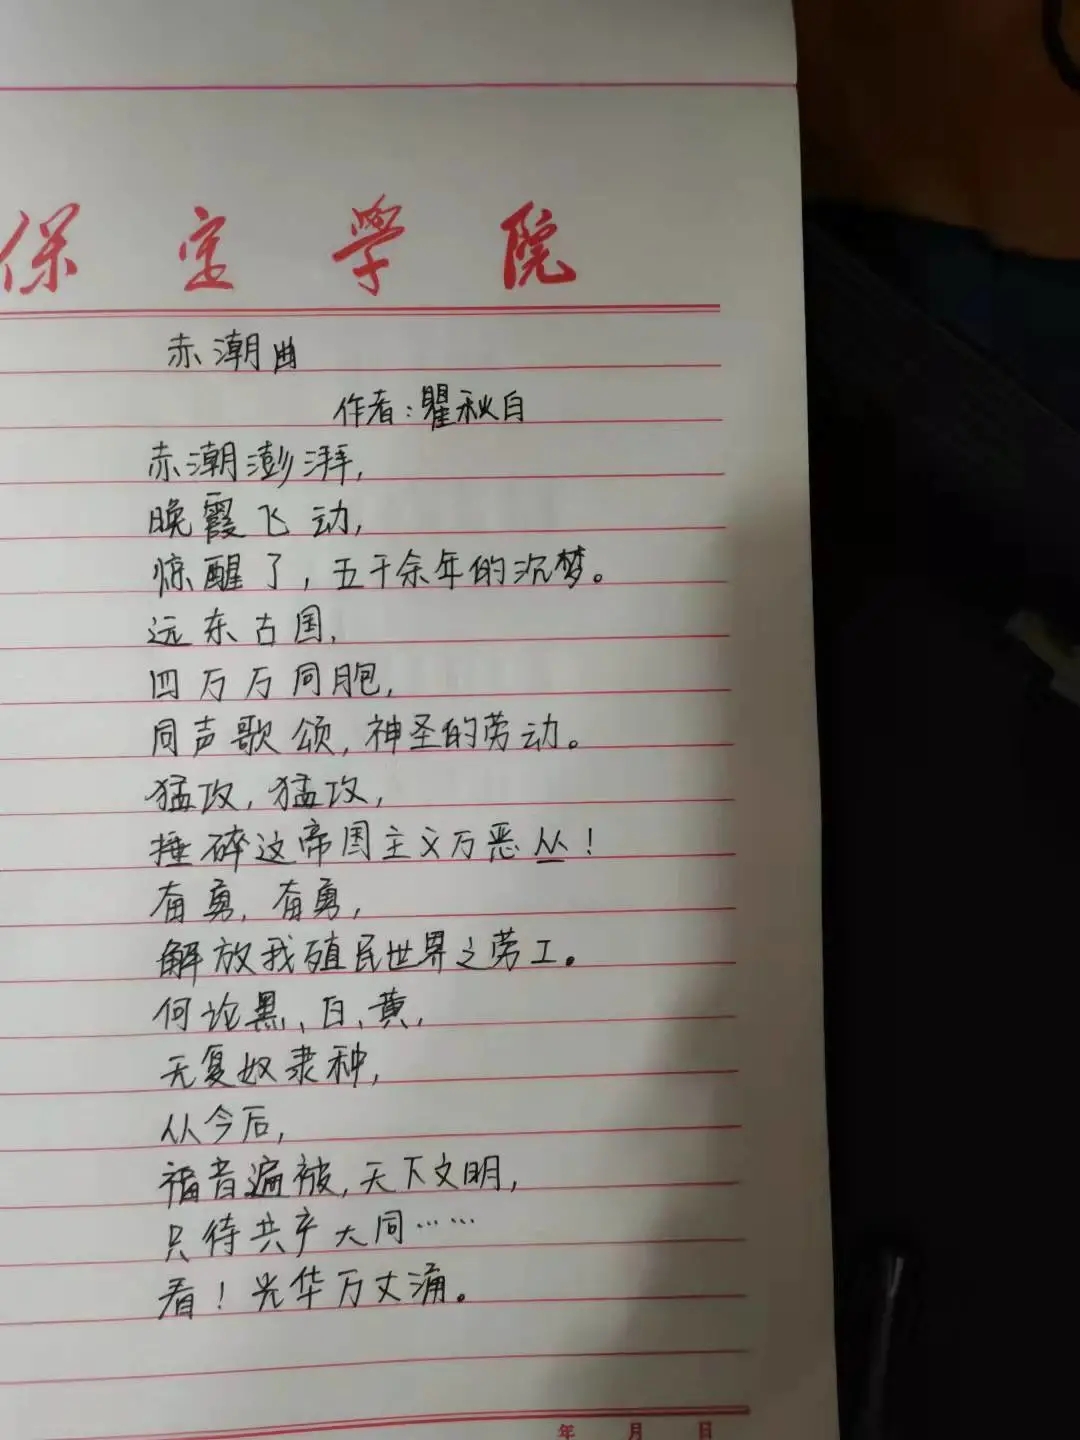 保定学院
赤潮曲
作者:瞿秋白
赤潮澎湃,
晚霞飞动,
惊醒了,五千余年的沉梦。
远东古国,
四万万同胞,
同声歌颂,神圣的劳动。
猛攻,猛攻,
捶碎这帝国主义万恶丛!
奋勇,奋勇,
解放我殖民世界之劳工。
何论黑、白、黄,
无复奴隶种,
从今后,
福音遍被,天下文明,
只待共产大同……
看!光华万丈涌。
年 月 日